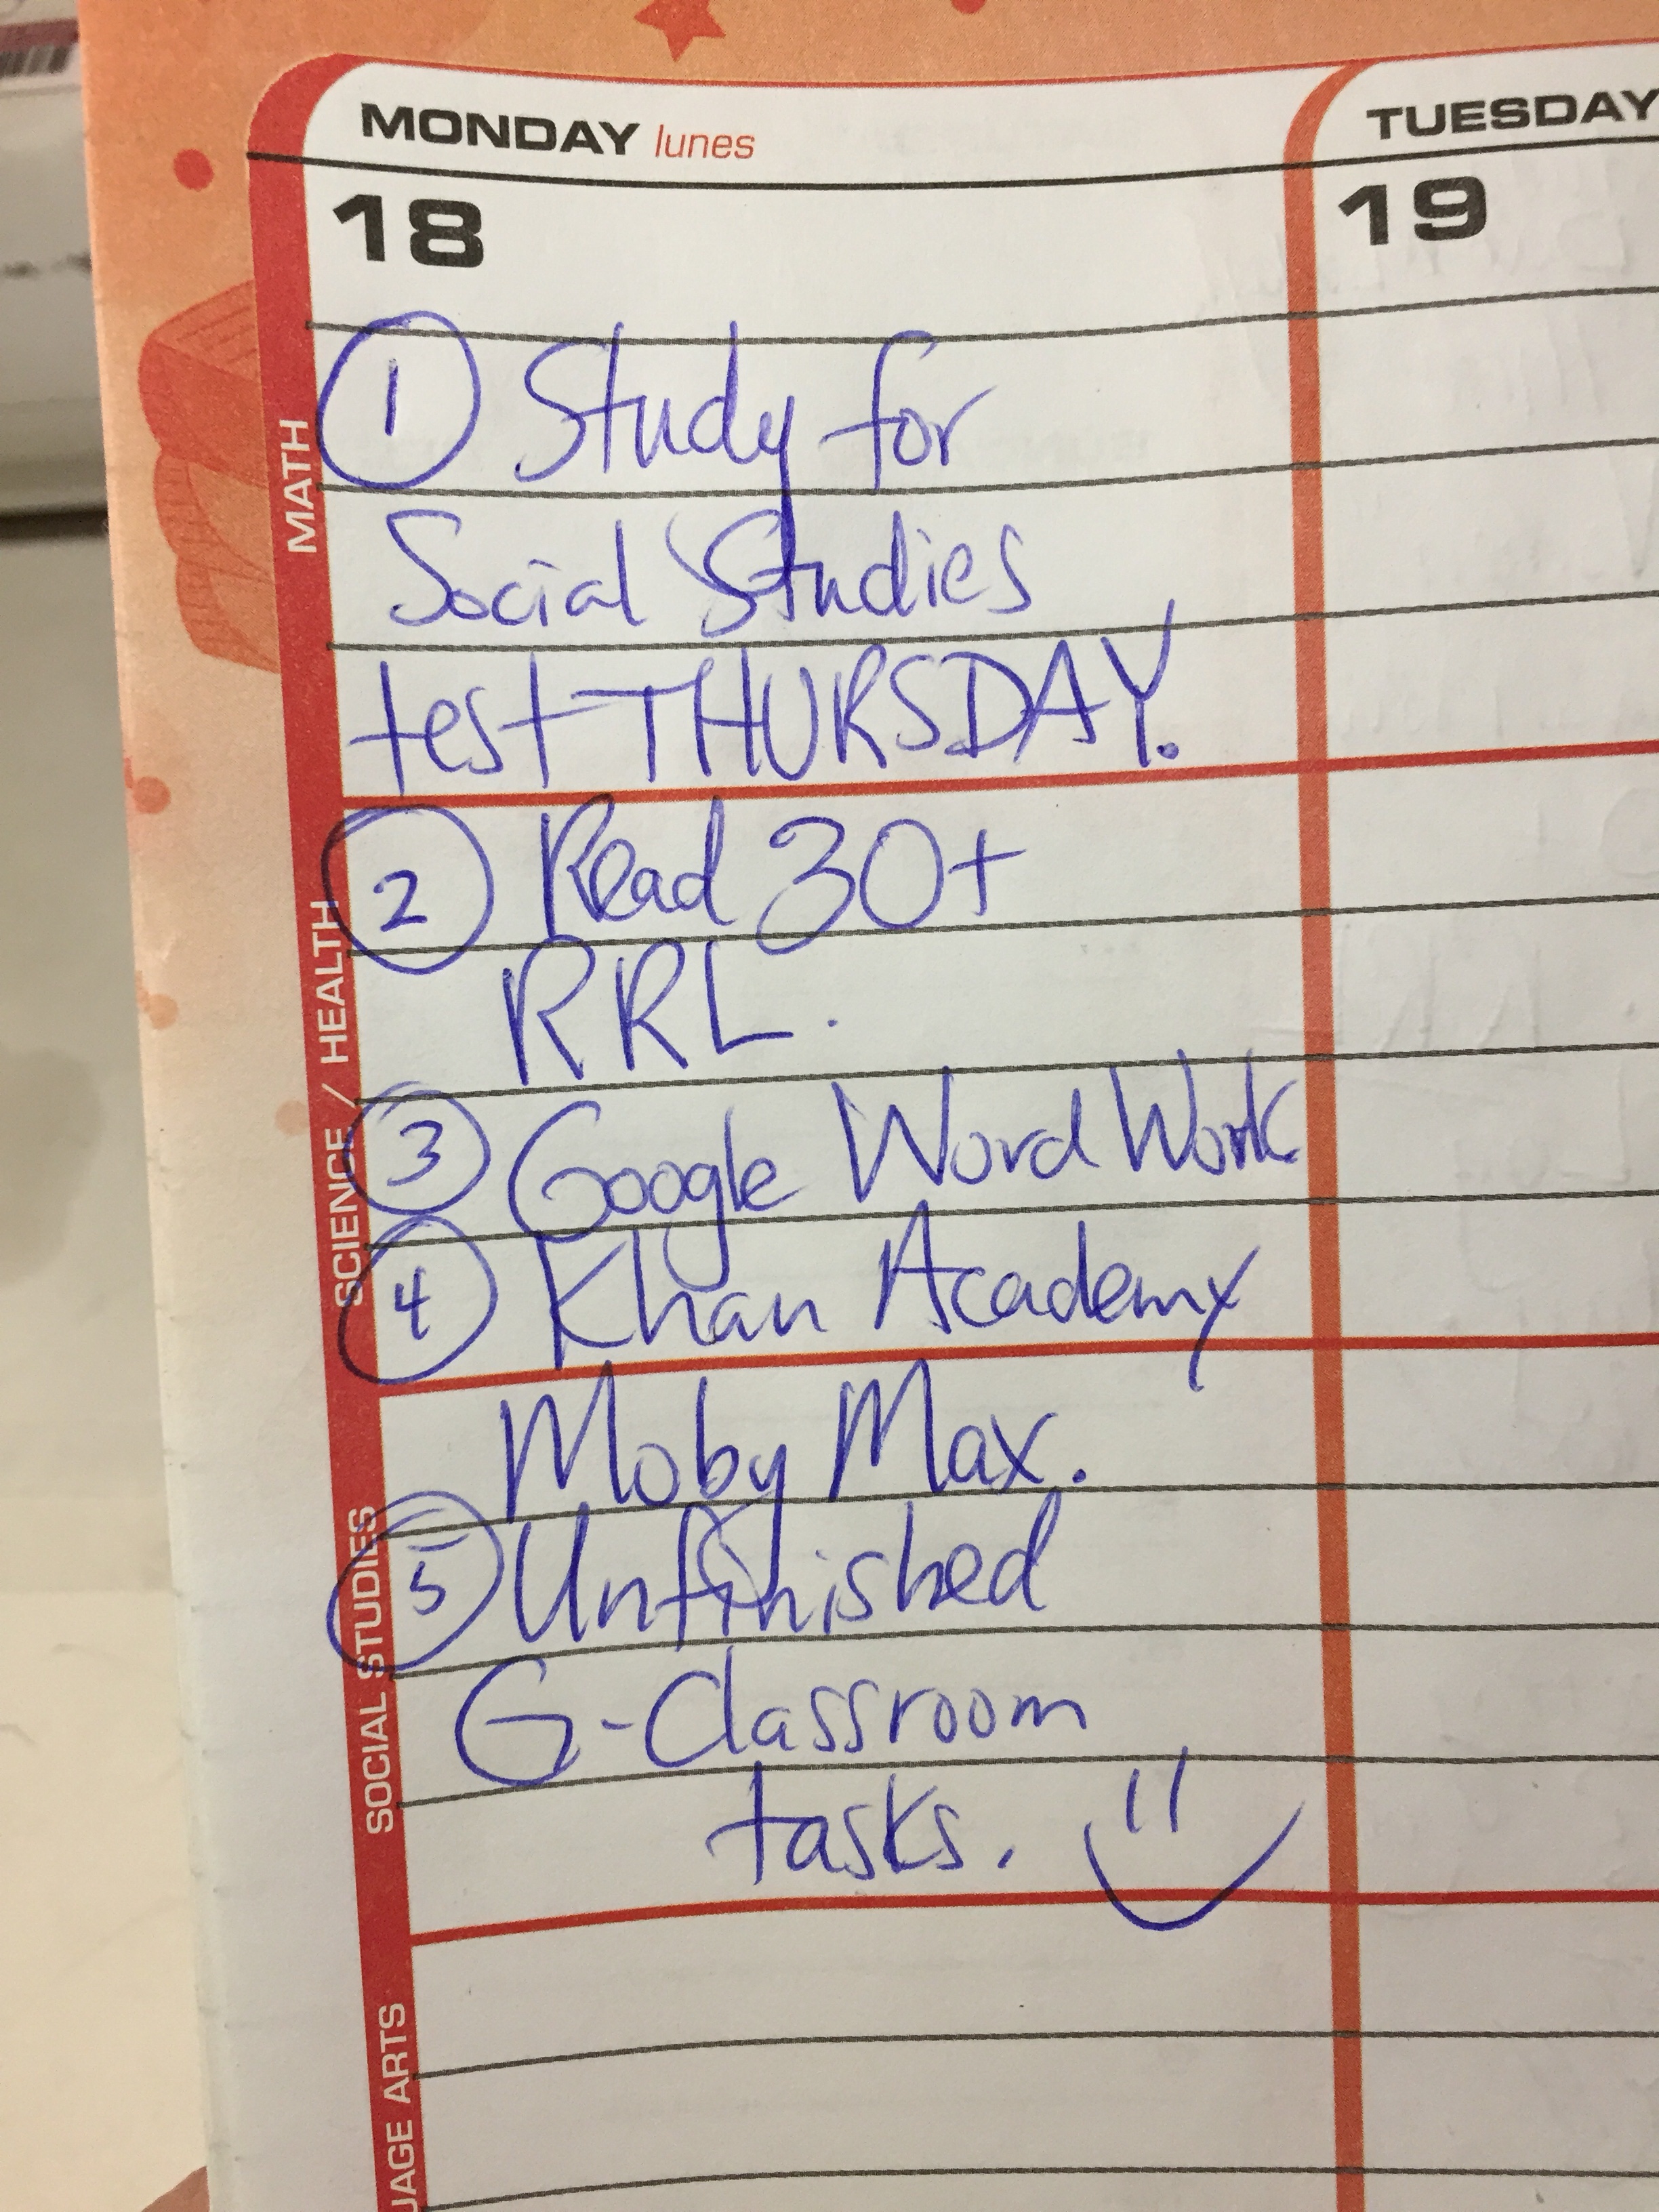 MONDAY lunes
TUESDAY
18
19
MATH
① Study for
Social Studies
test THURSDAY.
SCIENCE / HEALTH
② Read 30+
RRL.
③ Google Word Work
④ Khan Academy
Moby Max.
SOCIAL STUDIES
⑤ Unfinished
G-Classroom
tasks.
UAGE ARTS